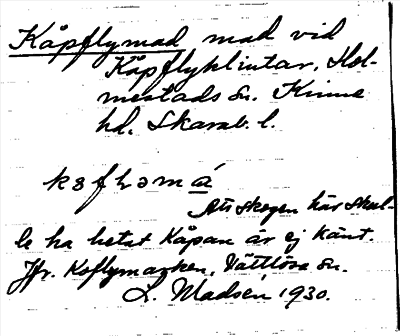 Kåpflymad mad vid
Kåpflyklintar, Hol-
mestads sn. Kinne
hd. Skarab. l.
kɜflɜmá
Att skogen här skul-
le ha hetat Kåpan är ej känt.
Jfr. Koflymarken, Vättlösa sn.
L. Madsén 1930.